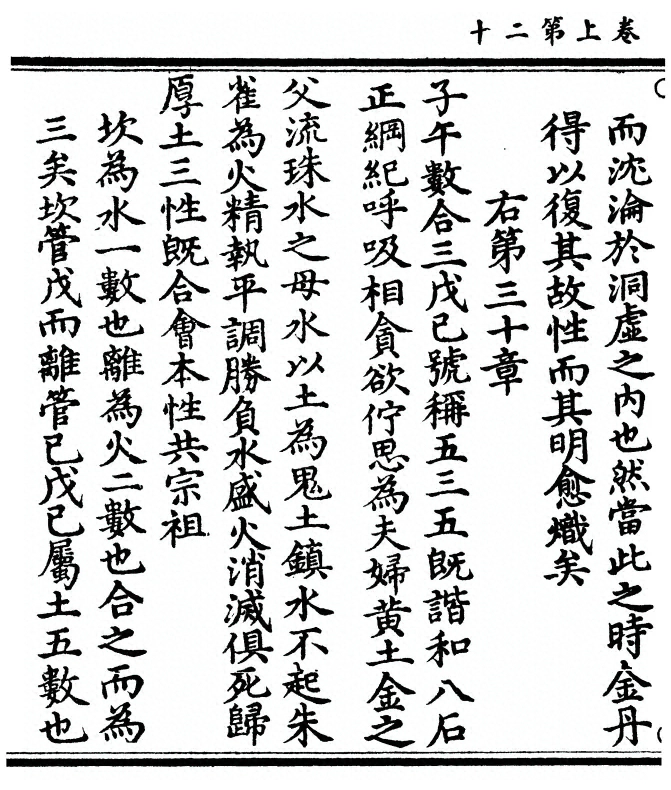 卷上第二十
而沈淪於洞虛之內也然當此之時金丹
得以復其故性而其明愈熾矣
右第三十章
子午數合三戊己號稱五三五既諧和八石
正綱紀呼吸相貪欲佇思為夫婦黃土金之
父流珠水之母水以土為鬼土鎮水不起朱
雀為火精執平調勝負水盛火消滅俱死歸
厚土三性既合會本性共宗祖
坎為水一數也離為火二數也合之而為
三矣坎管戊而離管己戊己屬土五數也